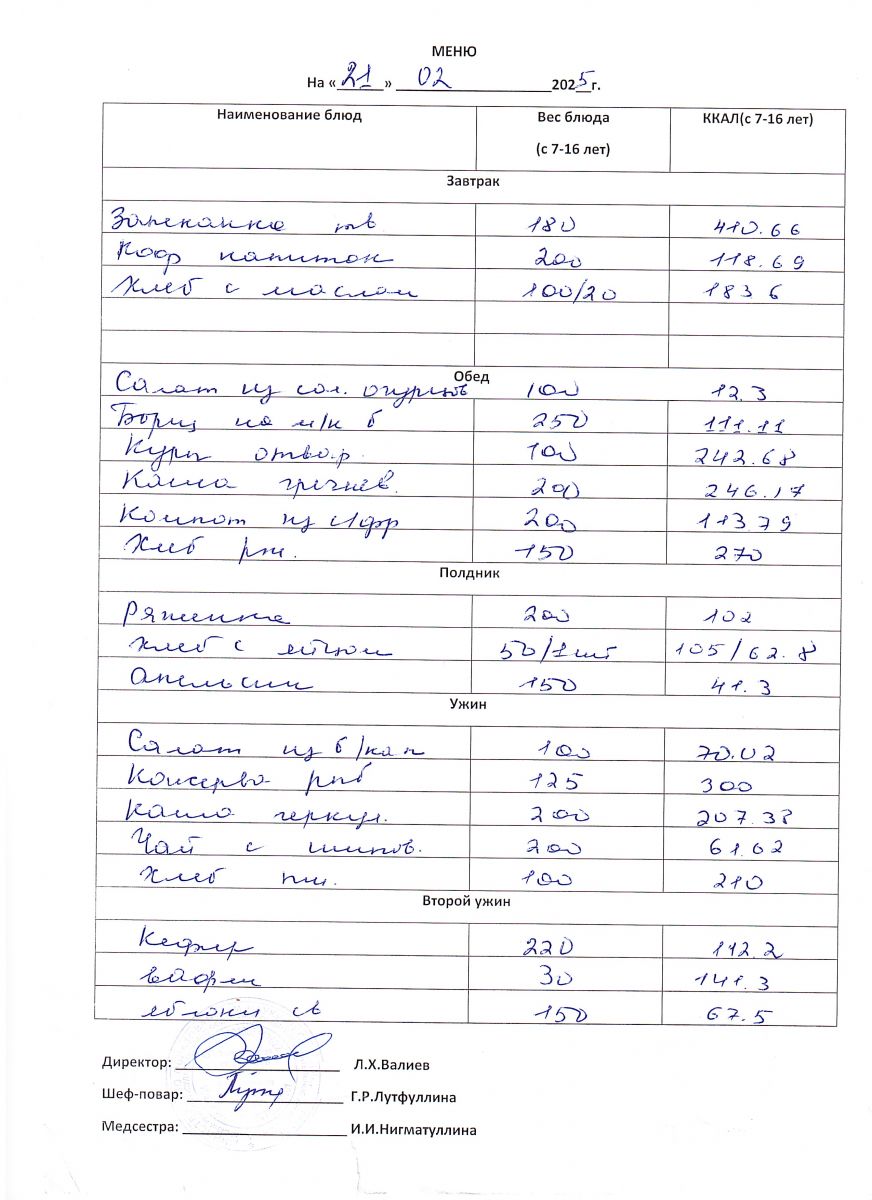 МЕНЮ
На «21» 02 2025 г.
Наименование блюд Вес блюда (с 7-16 лет) ККАЛ(с 7-16 лет)
Завтрак
Запеканка тв 180 410.66
Коф напиток 200 118.69
Хлеб с маслом 100/20 183 6
Обед
Салат из сол. огурцов 100 12.3
Борщ на м/к б 250 111.11
Куры отвар. 100 242.68
Каша гречнев. 200 246.17
Компот из с/фр 200 113.79
Хлеб рж. 150 270
Полдник
Ряженка 200 102
Хлеб с яйцом 50/1шт 105/62.8
Апельсин 150 41.3
Ужин
Салат из б/кап 100 70.02
Консерва рыб 125 300
Каша геркул. 200 207.38
Чай с шипов. 200 61.62
Хлеб пш. 100 210
Второй ужин
Кефир 220 112.2
вафли 30 141.3
яблоки св 150 67.5
Директор: Л.Х.Валиев
Шеф-повар: Г.Р.Лутфуллина
Медсестра: И.И.Нигматуллина